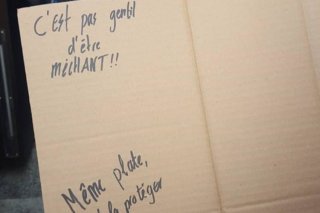 C'EST pas gentil
d'être
MÉCHANT!!
Même plate,
la protéger